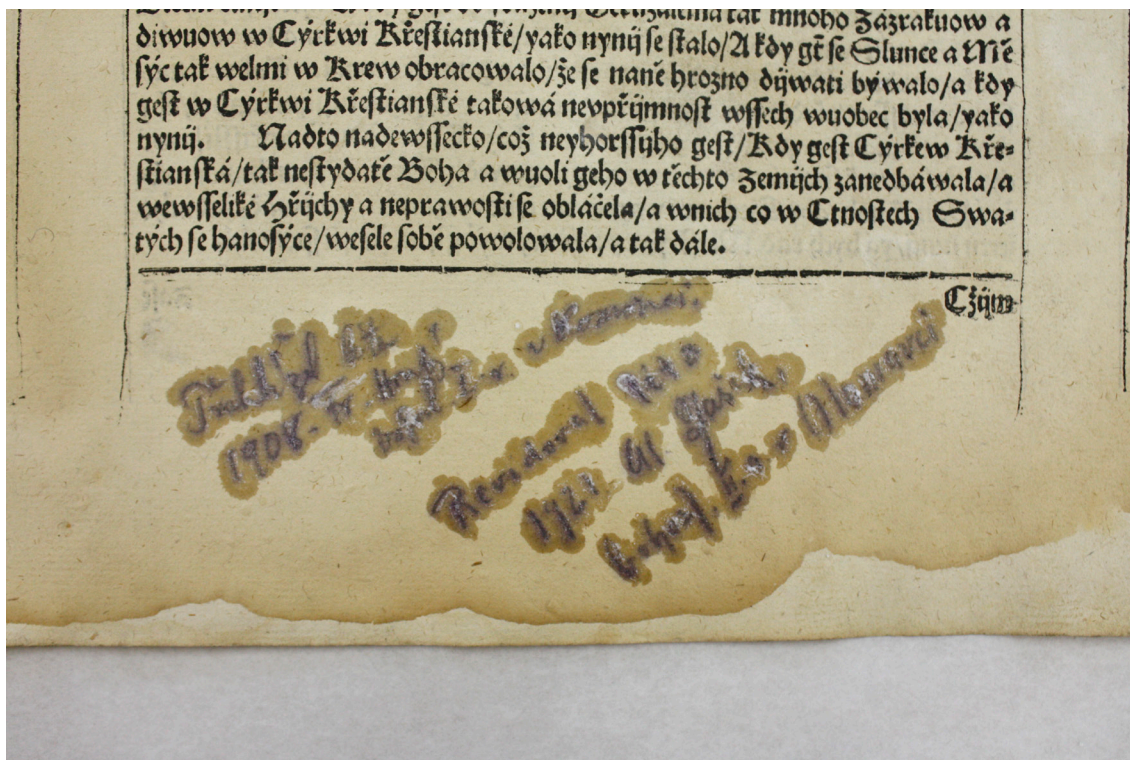 mnoho Zázrakuow a
diwuow w Cýrkwi Křestianské/yako nynij se stalo/A kdy gť se Slunce a Mě
sýc tak welmi w Krew obracowalo/že se naně hrozno dijwati býwalo/a kdy
gest w Cýrkwi Křestianské taková nevpřijmnost wssech wuobec byla/yako
nynij. Nadto nadewssecko/což neyhorssyho gest/Kdy gest Cýrkew Kře-
stianská/tak nestydatě Boha a wuoli geho w těchto Zemijch zanedbáwala/a
wewsseliké Hřijchy a neprawosti se obláčela/a wnich co w Ctnostech Swa-
tých se hanosýce/wesele sobě powolowala/a tak dále.
Cžijm
1908
Renovoval
1921
Olomouci